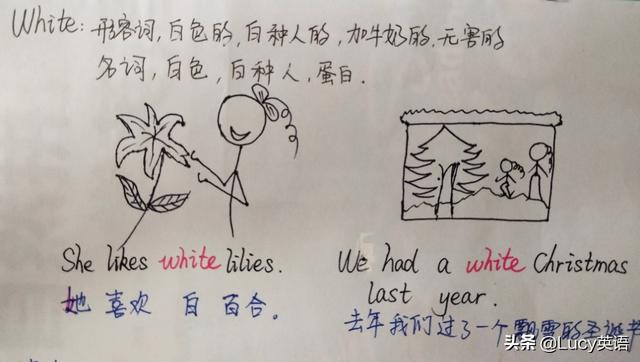 White: 形容词,白色的,白种人的,加牛奶的,无害的
名词,白色,白种人,蛋白.
She likes white lilies.
她喜欢 白 百合。
We had a white Christmas
last year.
去年我们过了一个飘雪的圣诞节
头条 @Lucy英语